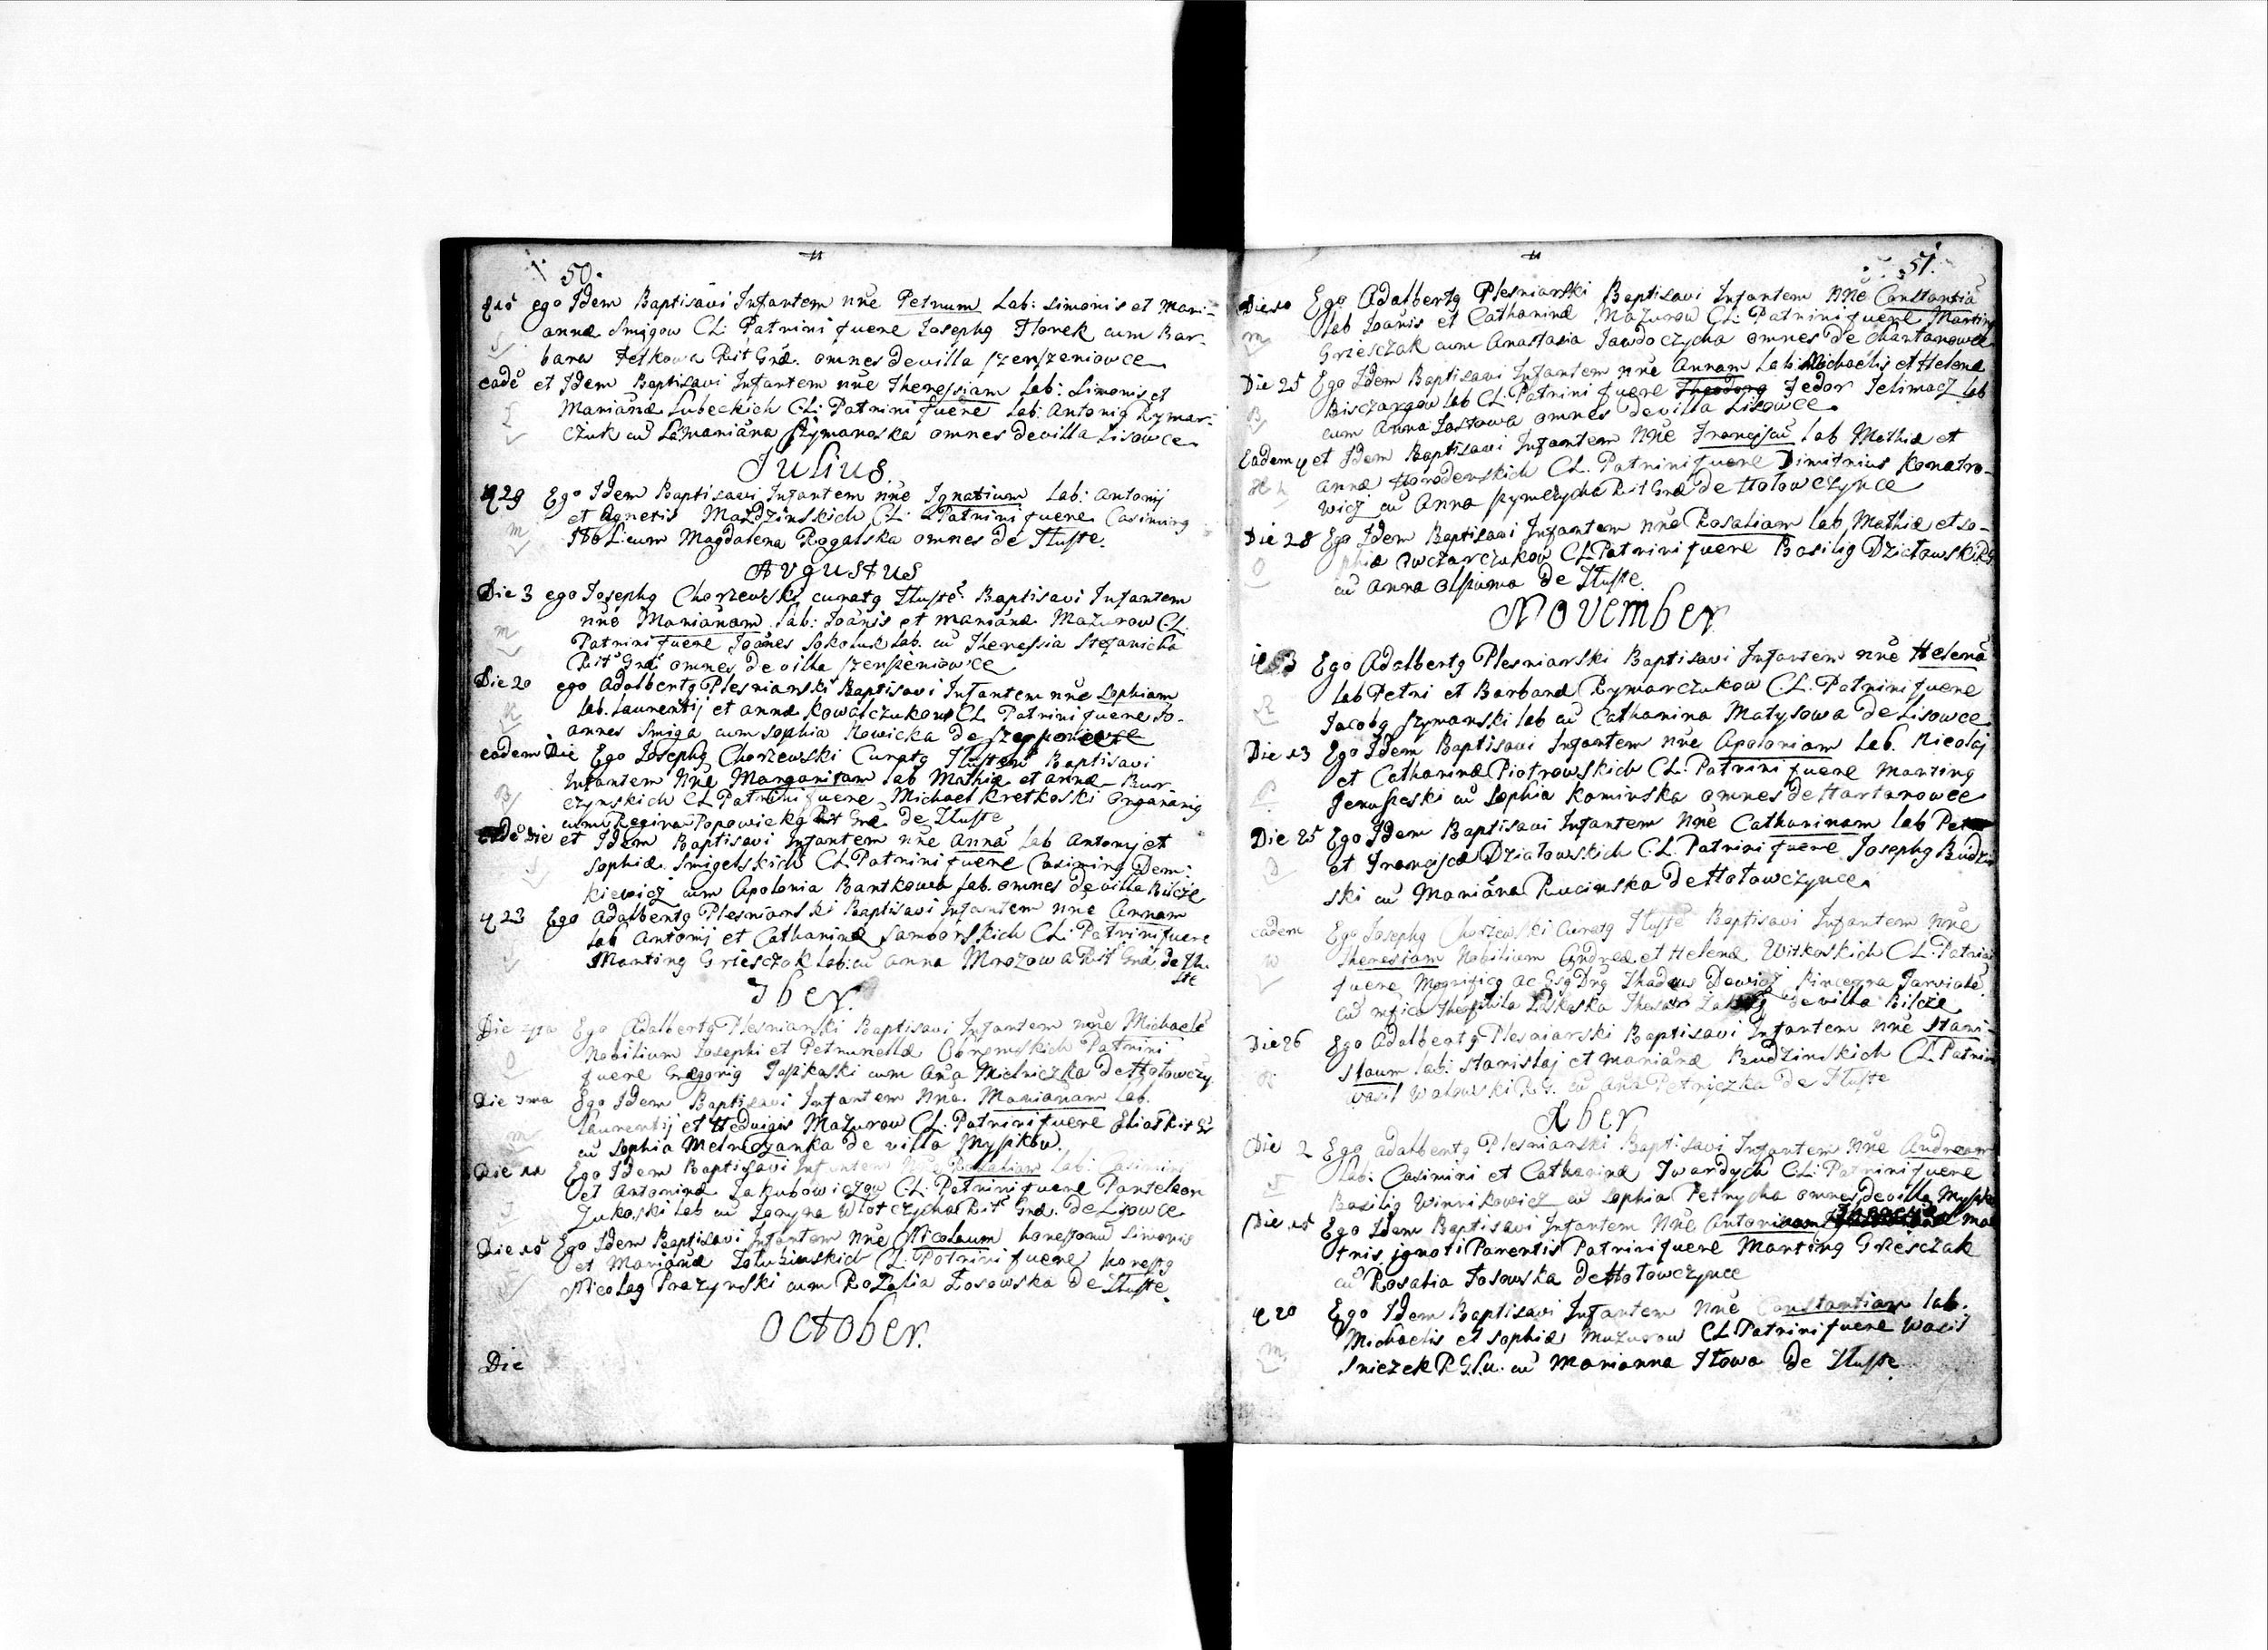 50.
q 15 ego Idem Baptisavi Infantem nñe Petrum Lab: Simonis et Mari-
annæ Smigow CL: Patrini fuere Josephg Florek cum Bar-
bara Fetkowa Rit Græ. omnes de villa Szerszeniowce
S
eadē et Idem Baptisavi Infantem nñe Theressiam Lab: Simonis et
Mariānæ Lubeckich CL: Patrini fuere Lab: Antonig Rymar-
czuk cū Mariāna Szymanoska omnes de villa Lisowce
L
Julius.
q 29 Ego Idem Baptisavi Infantem nñe Ignatium Lab: Antonij
et Agnetis Mazdzinskich CL: Patrini fuere Casimirg
cum Magdalena Rogalska omnes de Tłuste.
m
Avgustus
Die 3 ego Josephg Chorzewski curatg Tłustē Baptisavi Infantem
nñe Marianam Lab: Joānis et Mariānæ Mazurow CL.
Patrini fuere Joānes Sokoluk Lab. cū Theressia Stefanicha
Rit Græ omnes de villa Szerszeniowce
m
Die 20 ego Adalbertg Plesniarski Baptisavi Infantem nñe Sophiam
Lab. Laurentij et Annæ Kowalczukow CL Patrini fuere Jo-
annes Smiga cum Sophia Nowicka de
K
eadem Die Ego Josephg Chorzewski Curatg Baptisavi
Infantem Nñe Margaritam Lab Mathiæ et Annæ Bur-
czynskich CL Patrini fuere Michael Kretkoski Organarig
cum Regina Popowicka Rit Græ de Tłuste
B
eadē Die et Idem Baptisavi Infantem nñe Annā Lab Antonij et
Sophiæ Smigelskich CL Patrini fuere Casimirg Dem-
kiewicz cum Apolonia Bartkowa Lab. omnes de villa Bilcze
S
q 23 Ego Adalbertg Plesniarski Baptisavi Infantem nñe Annam
Lab Antonij et Catharinæ Samborskich CL: Patrini fuere
Marting Griesczak Lab: cū Anna Mrozowa Rit Græ de Tłu-
ste
7ber.
Die Ego Adalbertg Plesniarski Baptisavi Infantem nñe Michaelē
Nobilium Josephi et Petrunellæ Patrini
fuere Grægorig cum Anā Mielniczka de Hołowczy.
O
Die 7ma Ego Idem Baptisavi Infantem Nñe. Marianam Lab.
Laurentij et Hedvigis Mazurow CL. Patrini fuere
cū Sophia Melniczanka de villa Myszkow.
m
Die 11 Ego Idem Baptisavi Infantem Nñe Rosaliam Lab: Casimiri
et Antoninæ Jakubowiczow CL: Patrini fuere Panteleon
Zukoski Lab cū Rit Græ. de Lisowce
J
Die 15 Ego Idem Baptisavi Infantem Nñe Nicolaum honestorū Simonis
et Mariānæ CL: Patrini fuere honestg
Nicolag Prazynski cum Rozalia Łosowska de Tłuste.
October.
Die
51.
Die 10 Ego Adalbertg Plesniarski Baptisavi Infantem Nñe Constantiā
Lab Joānis et Catharinæ Mazurow CL: Patrini fuere Marting
Griesczak cum Anastasia Jawdoczycha omnes de Chartanowce
m
Die 25 Ego Idem Baptisavi Infantem nñe Annam Lab: Michaelis et Helenæ
Bisczargow Lab CL: Patrini fuere Theodorg Fedor Jelimacz Lab
cum Anna omnes de villa Lisowce.
B
Eadem q et Idem Baptisavi Infantem Nñe Franciscū Lab Mathiæ et
Annæ Horodenskich CL. Patrini fuere Dimitrius Konatro-
wicz cū Anna Szymczycha Rit Græ de Hołowczynce
Die 28 Ego Idem Baptisavi Infantem nñe Rosaliam Lab, Mathiæ et So-
phiæ Owczarczukow CL Patrini fuere Basilig Dzictawski
cū Anna de Tłuste.
O
November
q 3 Ego Adalbertg Plesniarski Baptisavi Infantem nñe Helenā
Lab Petri et Barbaræ Rymarczukow CL. Patrini fuere
Jacobg Szymanski Lab cū Catharina Matysowa de Lisowce
R
Die 13 Ego Idem Baptisavi Infantem nñe Apoloniam Lab. Nicolaj
et Catharinæ Piotrowskich CL. Patrini fuere Marting
Jeruszeski cū Sophia Kominska omnes de Hartanowce
P.
Die 25 Ego Idem Baptisavi Infantem Nñe Catharinam Lab
et Franciscæ Dziatowskich CL. Patrini fuere Josephg Budzin
ski cū Mariāna Rucinska de Hołowczynce.
D
eadem Ego Josephg Chorzewski Curatg Tłustē Baptisavi Infantem Nñe
Theresiam Nobilium Andreæ et Helenæ Witkoskich CL. Patrini
fuere Magnificg ac Thadeus Dewicz Pincerna
cū de villa Bilcze
W
Die 26 Ego Adalbertg Plesniarski Baptisavi Infantem nñe Stani-
slaum Lab: Stanislaj et Mariānæ Budzinskich CL Patrini
Wasil R.G. cū Anā Petryczka de Tłuste
B
Xber
Die 2 Ego Adalbertg Plesniarski Baptisavi Infantem Nñe Andream
Lab: Casimiri et Catharinæ Twardych CL: Patrini fuere
Basilig Winnikowicz cū Sophia Petrycha omnes de villa
T
Die 15 Ego Idem Baptisavi Infantem Nñe Antoninam
tris ignoti Parentis Patrini fuere Marting Griesczak
cū Rosalia Łosowska de Hołowczynce
q 20 Ego Idem Baptisavi Infantem Nñe Constantiam Lab.
Michaelis et Sophiæ Mazurow CL Patrini fuere Wasil
Sniezek cū Marianna Iłowa de Tłuste.
m